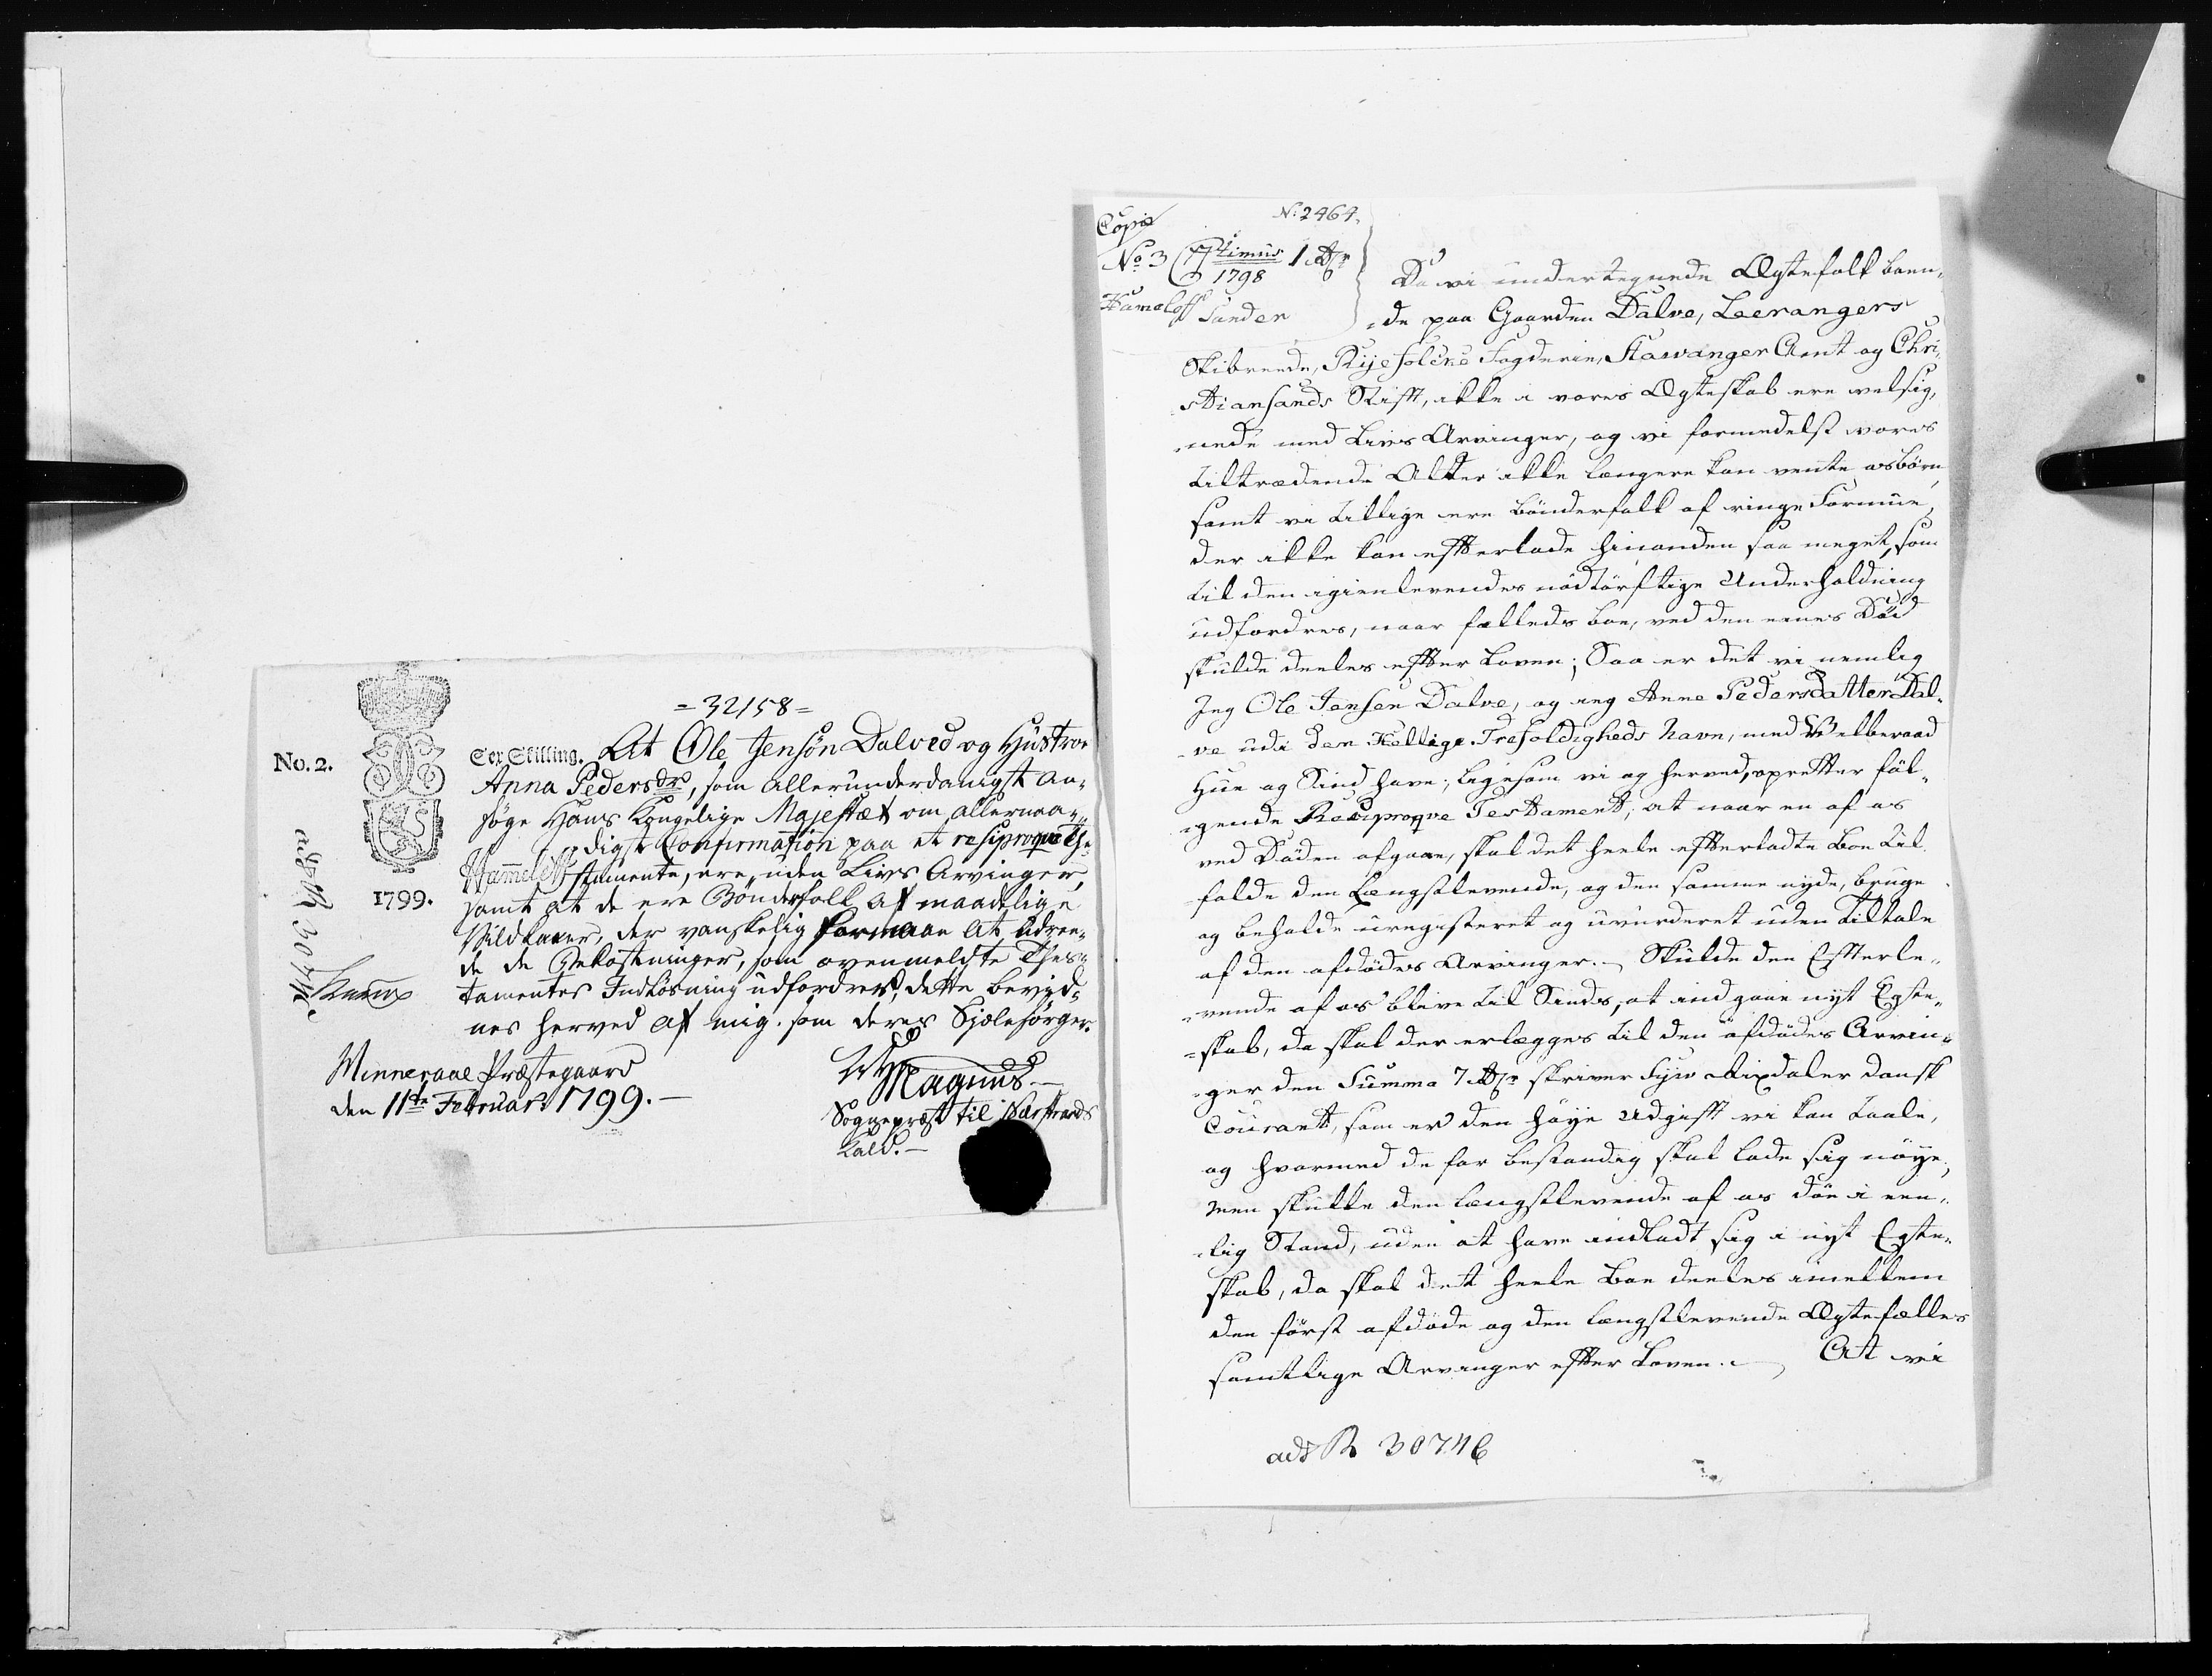 =32158=
No. 2.
Sex Skilling. At Ole Jensøn Dalved og Hustroe
Anna Pedersdr, som allerunderdanigst an-
søge Hans Kongelige Majestæt om allernaa-
digst Confirmation paa et resiproque The-
Hammeleff
stamente, ere uden Livs Arvinger,
1799.
samt at de ere Bønderfolk af maadelige
Vildkaar, der vanskelig formaae at udree-
de de Bekostninger, som ovenmeldte Thes-
tamentes Indløsning udfordres, dette bevid-
nes herved af mig som deres Sjælesørger.
Minneraae Præstegaard
den 11te Februar: 1799.
Magnus
Sognepræst til Nærstrands
Kald.
Copie
N: 2464.
No 3
Ptimus 1 Rdr
1798
Hameleff Sander
Da vi undertegnede Ægtefolk boen-
de paa Gaarden Dalve, Leerangers
Skibreede, Ryefolche Fogderie, Stawanger Amt og Chri-
stiansands Stift, ikke i vores Ægteskab ere velsig-
nede med Livs Arvinger, og vi formedelst vores
tiltrædende Alder ikke længere kan vente os børn,
samt vi tillige ere bønderfolk af ringe Formue,
der ikke kan efterlade hinanden saa meget, som
til den igienlevendes nødtørftige Underholdning
udfordres, naar fælleds boe, ved den eenes Død
skulde deeles efter Loven; Saa er det vi nemlig
Jeg Ole Jensen Dalve, og jeg Anne Pedersdatter Dal-
ve udi den Hellige Trefoldigheds Navn, med Velberaad
Hue og Sind have, ligesom vi og herved, opretter føl-
gende Reciproqve Testament, at naar en af os
ved Døden afgaae, skal det heele efterladte Boe til-
falde den Længstlevende, og den samme nyde, bruge
og beholde uregisteret og uvurderet uden Tiltale
af den afdødes Arvinger. Skulde den Efterle-
vende af os blive til Sinds, at indgaae nyt Egte-
skab, da skal der erlægges til den afdødes Arvin-
ger den Summa 7 Rdr skriver Syv Rixdaler dansk
Courant, som er den høye Udgift vi kan taale,
og hvormed de for bestandig skal lade sig nøye,
men skulle den længstlevende af os døe i een-
lig Stand, uden at have indladt sig i nyt Egte-
skab, da skal det heele Boe deeles imellem
den først afdøde og den længstlevende Ægtefælles
samtlige Arvinger efter Loven. At vi